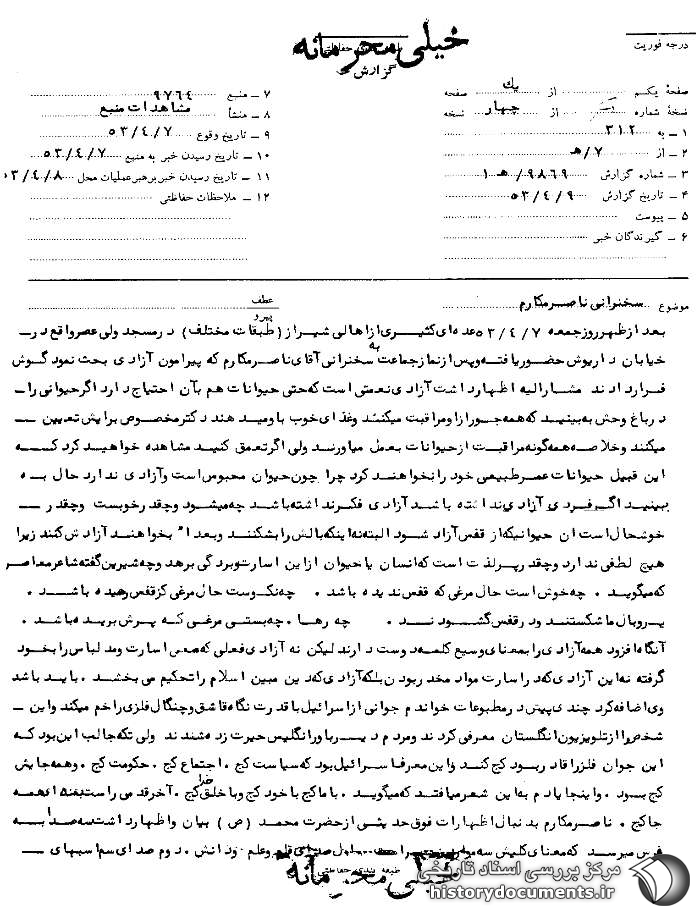 خیلی محرمانه
طبقه بندی حفاظتی
درجه فوریت
گزارش
صفحهٔ یکم از یك صفحه
نسخهٔ شماره از چهار نسخه
۱ ـ به ۳۱۲
۲ ـ از ۷/هـ
۳ ـ شماره گزارش ۹۸۶۹/هـ ۱
۴ ـ تاریخ گزارش ۵۳/٤/۹
۵ ـ پیوست
۶ ـ گیرندگان خبر
۷ ـ منبع ۹۷٦٤
۸ ـ منشأ مشاهدات منبع
۹ ـ تاریخ وقوع ۵۳/٤/۷
۱۰ ـ تاریخ رسیدن خبر به منبع ۵۳/٤/۷
۱۱ ـ تاریخ رسیدن خبر برهبر عملیات محل ۵۳/٤/۸
۱۲ ـ ملاحظات حفاظتی
موضوع سخنرانی ناصر مکارم
عطف
پیرو
بعد ازظهر روز جمعه ۵۳/٤/۷ عده ای کثیری از اهالی شیراز (طبقات مختلف) در مسجد ولی عصر واقع در ـ
خیابان داریوش حضور یافته و پس از نماز جماعت به سخنرانی آقای ناصر مکارم که پیرامون آزادی بحث نمود گوش
فرا دادند مشارالیه اظهار داشت آزادی نعمتی است که حتی حیوانات هم بآن احتیاج دارد اگر حیوانی را ـ
در باغ وحش به بینید که همه جور از او مراقبت میکنند و غذای خوب باو میدهند دکتر مخصوص برایش تعیین ـ
میکنند و خلاصه همه گونه مراقبت از حیوانات بعمل میاورند ولی اگر تعمق کنید مشاهده خواهید کرد کـه
این قبیل حیوانات عمر طبیعی خود را نخواهند کرد چرا چون حیوان محبوس است و آزادی ندارد حال به
ببینید اگر فردی آزادی نداشته باشد آزادی فکر نداشته باشد چه میشود و چقدر خوبست و چقدر ـ
خوشحال است ان حیوانیکه از قفس آزاد شود البته نه اینکه بالش را بشکنند و بعد بخواهند آزادش کنند زیرا
هیچ لطفی ندارد و چقدر پر لذت است که انسان یا حیوان از این اسارت و بردگی برهد و چه شیرین گفته شاعر معاصر
که میگوید . چه خوش است حال مرغی که قفس ندیده باشد . چه نکوست حال مرغی کز قفس رهیده باشد .
پر و بال ما شکستند و در قفس گشودند . چه رها . چه بستی مرغی که پرش بریده باشد .
آنگاه افزود همه آزادی را بمعنای وسیع کلمه دوست دارند لیکن نه آزادی فعلی که معنی اسارت و مد لباس را بخود
گرفته نه این آزادی که در اسارت مواد مخدر بودن بلکه آزادی که دین مبین اسلام را تحکیم می بخشد . باید باشد
وی اضافه کرد چندی پیش در مطبوعات خواندم جوانی از اسرائیل با قدرت نگاه قاشق و چنگال فلزی را خم میکند و این ـ
شخص را از تلویزیون انگلستان معرفی کردند و مردم در انگلیس حیرت زده شدند ولی نکته جالب این بود که
این جوان فلز را قادر بود کج کند و این معرف اسرائیل بود که سیاست کج . اجتماع کج . حکومت کج . و همه جایش
کج بود . و اینجا یادم به این شعر میافتد که میگوید . با ما کج با خود کج و با خلق خدا کج . آخر قدمی راست بنه ای همه
جا کج . ناصر مکارم بدنبال اظهارات فوق حدیثی از حضرت محمد (ص) بیان و اظهار داشت سه صدا بـه
عرش میرسد که معنای کلیش اول صدای قلم و علم و دانش . دوم صدای سم اسبهای ـ
طبقه بندی حفاظتی
خیلی محرمانه
مرکز بررسی اسناد تاریخی
historydocuments.ir